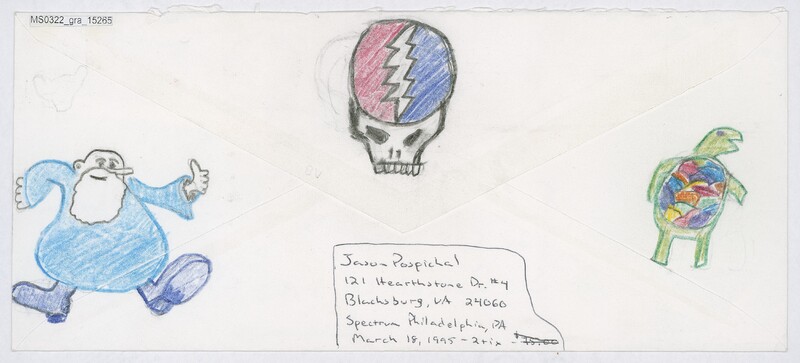 MS0322_gra_15265
Jason Pospichal
121 Hearthstone Dr. #4
Blacksburg, VA 24060
Spectrum Philadelphia, PA
March 18, 1995 - 2 tix -